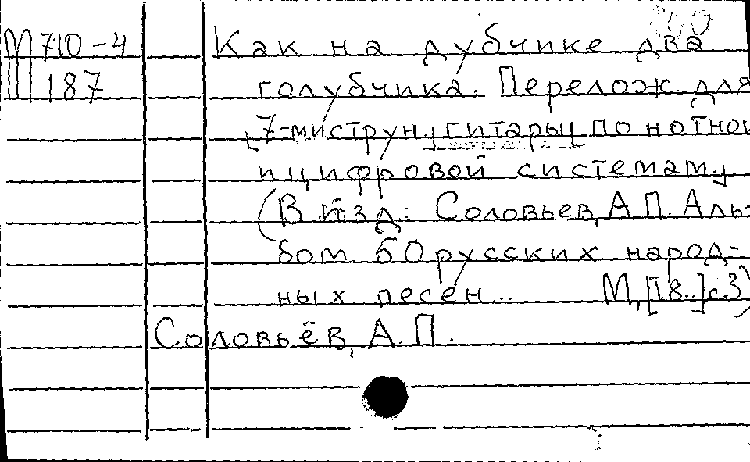 М 710-4
187
Как на дубчике два
голубчика. Перелож для
[7-миструн.] гитары по нотной
и цифровой системам.
(В изд: Соловьев, А.П. Аль-
бом 60 русских народ-
ных песен.. М, [18..] с.3)
Соловьёв, А.П.